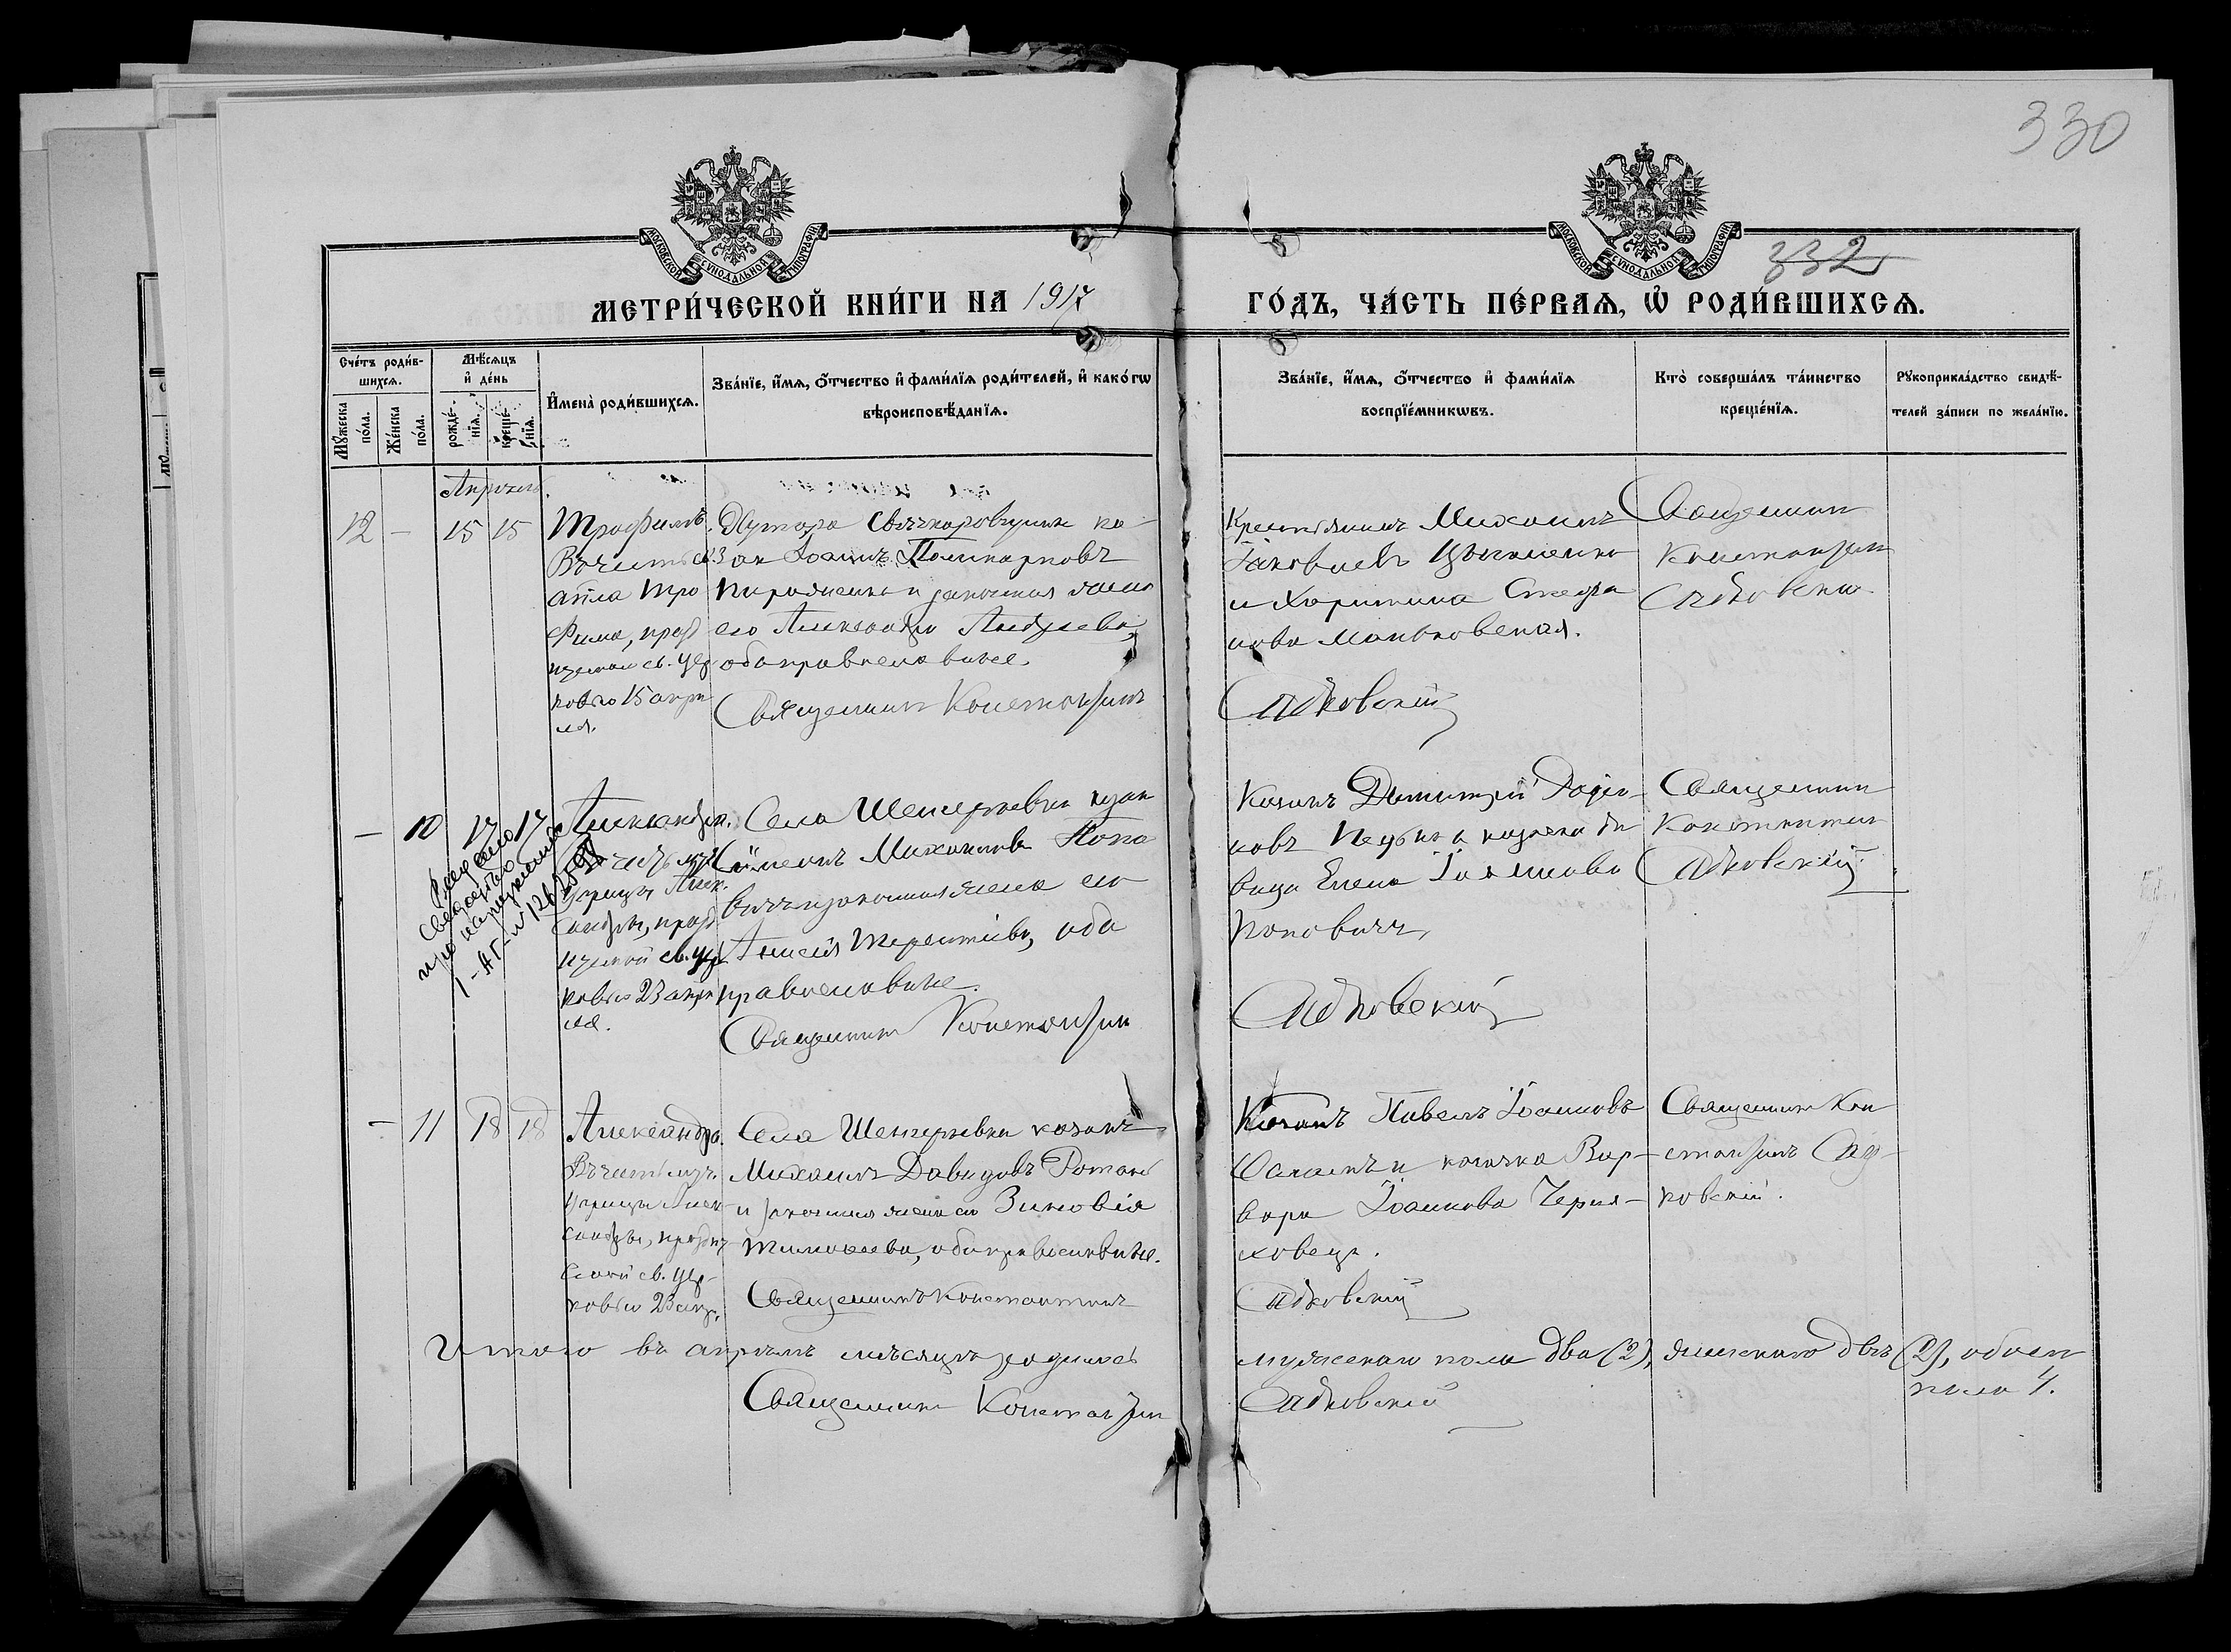 330
МОСКОВСКОЙ СУНОДАЛЬНОЙ ТИПОГРАФІИ
МОСКОВСКОЙ СУНОДАЛЬНОЙ ТИПОГРАФІИ
332
МЕТРИ́ЧЕСКОЙ КНИ́ГИ НА 1917
ГО́ДЪ, ЧА́СТЬ ПЕ́РВАѦ, Ѡ҆ РОДИ́ВШИХСѦ.
Сче́тъ роди́в-
шихсѧ.
Мꙋ́жеска
по́ла.
Же́нска
по́ла.
Мѣ́сѧцъ
и҆ де́нь
рожде́-
нїѧ.
креще́-
нїѧ.
И҆мена̀ роди́вшихсѧ.
Зва́нїе, и҆́мѧ, ѻ҆́тчество и҆ фамѝлїѧ роди́телей, и҆ како́гѡ
вѣроисповѣ́данїѧ.
Зва́нїе, и҆́мѧ, ѻ҆́тчество и҆ фамѝлїѧ
воспрїе́мникѡвъ.
Кто̀ соверша́лъ та́инство
креще́нїѧ.
Рꙋкоприкла́дство свидѣ́-
телей за́писи по жела́нїю.
Апрѣль.
12 - 15 15
Трофимъ.
Въ честь св.
ап̃ла Тро
фима, празд
нуемаго св. цер
ковью 15 апрѣ
ля.
Хутора ка
зак Іоаннъ Поликарповъ
и законная жена
его Александра Андреева,
оба православные.
Священникъ Константинъ
Крестьянинъ Михаилъ
Іаковлевъ
и Харитина Стефа
нова Маньковская.
Садковскій
Священникъ
Константинъ
Садковскій
- 10 17 17
Выдано
свидетельство
Александра.
Въ честь муч.
царицы Алек
сандры, празд
нуемой св. цер
ковью 23 апрѣ
ля.
Села Шенгеревки казак
Сѵмеонъ Михаиловъ Попо
вичъ и законная жена его
Анисія Терентіева, оба
православные.
Священникъ Константин
Казакъ Димитрій Родіо-
новъ и казачка дѣ
вица Елена Іоаннова
Поповичъ,
Садковскій
Священникъ
Константинъ
Садковскій.
- 11 18 18
Александра.
Въ честь муч.
царицы Алек
сандры, праздну
емой св. цер-
ковью 23 апр.
Села Шенгеревки казакъ
Михаилъ Давидовъ Ротань
и законная жена его Зиновія
Тимофеева, оба православные.
Священникъ Константинъ
Казакъ Павелъ Іоанновъ
и казачка Вар-
вара Іоаннова Черня-
ховец.
Садковскій
Священникъ Кон
стантинъ Сад-
ковскій.
Итого въ апрѣлѣ мѣсяцѣ родилось
мужескаго пола два (2), женскаго двѣ (2), обоего
пола 4.
Священникъ Константин
Садковскій